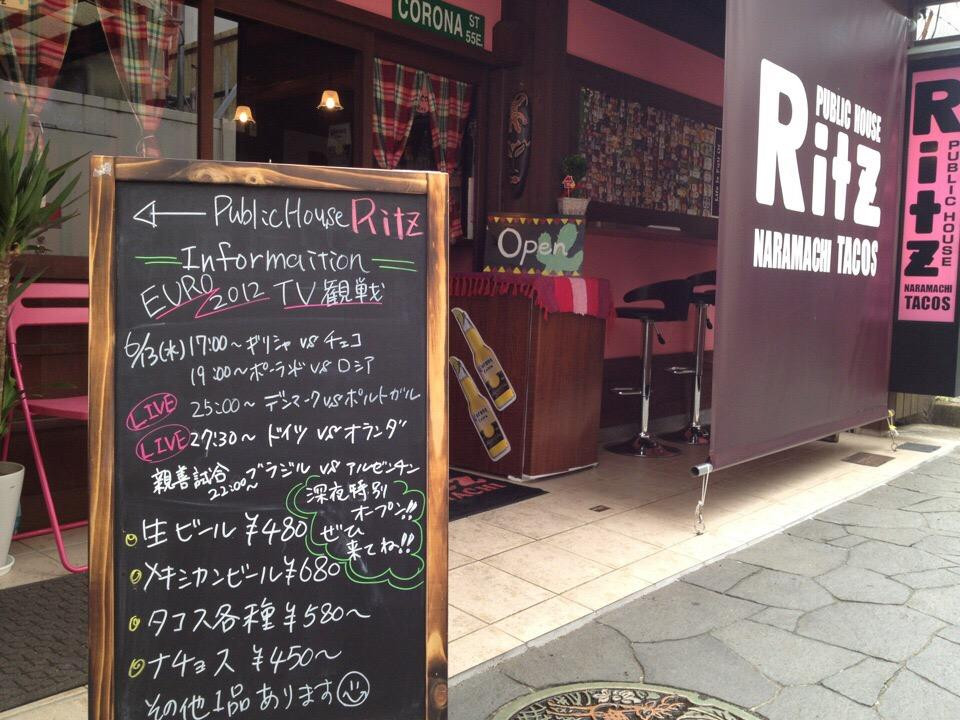 CORONA ST
55E
PUBLIC HOUSE
Ritz
NARAMACHI TACOS
Ritz
PUBLIC HOUSE
NARAMACHI
TACOS
Open
← PublicHouse Ritz
Informaition
EURO 2012 TV観戦
6/13(水) 17:00〜ギリシャ vs チェコ
19:00〜ポーランド vs ロシア
LIVE 25:00〜 デンマーク vs ポルトガル
LIVE 27:30〜 ドイツ vs オランダ
親善試合 ブラジル vs アルゼンチン
22:00〜
深夜特別
オープン!!
ぜひ
来てね!!
生ビール ¥480
メキシカンビール ¥680
タコス各種 ¥580〜
ナチョス ¥450〜
その他1品あります